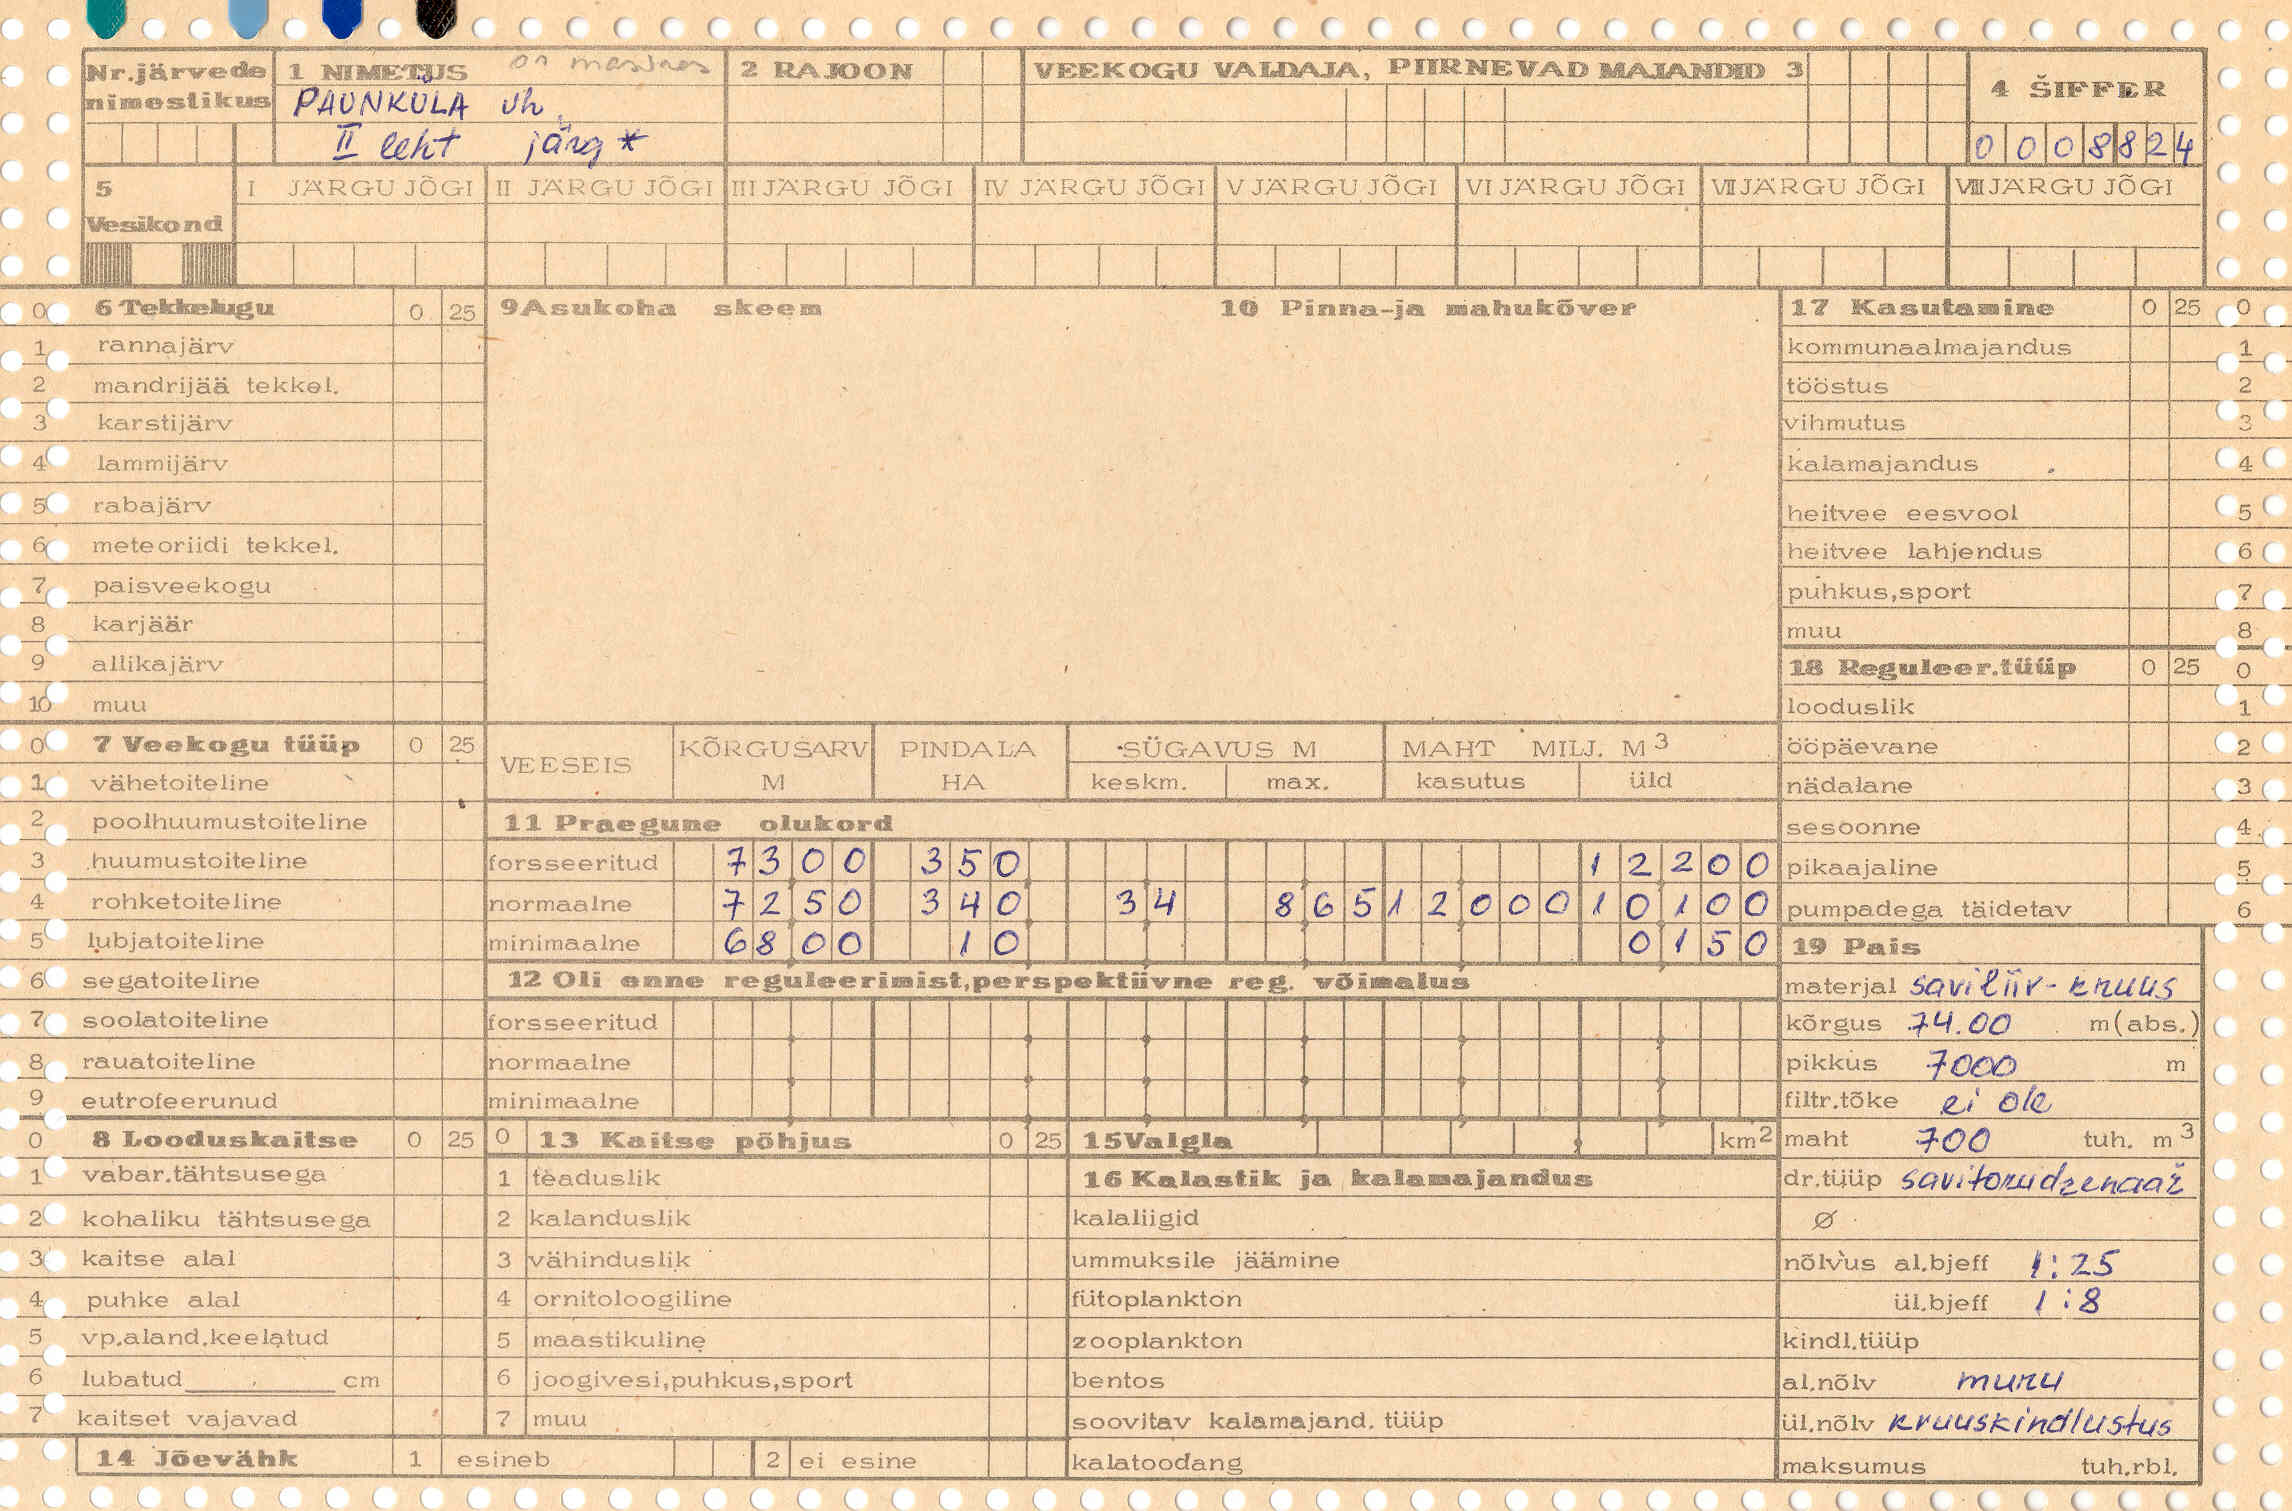 Nr.järvede nimestikus
1 NIMETUS on masinas
PAUNKÜLA vh
II leht järg *
2 RAJOON
VEEKOGU VALDAJA, PIIRNEVAD MAJANDID 3
4 ŠIFFER
0 0 0 8 8 2 4
5 Vesikond
I JÄRGU JÕGI
II JÄRGU JÕGI
III JÄRGU JÕGI
IV JÄRGU JÕGI
V JÄRGU JÕGI
VI JÄRGU JÕGI
VII JÄRGU JÕGI
VIII JÄRGU JÕGI
0 6 Tekkelugu 0 25
1 rannajärv
2 mandrijää tekkel.
3 karstijärv
4 lammijärv
5 rabajärv
6 meteoriidi tekkel.
7 paisveekogu
8 karjäär
9 allikajärv
10 muu
0 7 Veekogu tüüp 0 25
1 vähetoiteline
2 poolhuumustoiteline
3 huumustoiteline
4 rohketoiteline
5 lubjatoiteline
6 segatoiteline
7 soolatoiteline
8 rauatoiteline
9 eutrofeerunud
0 8 Looduskaitse 0 25
1 vabar.tähtsusega
2 kohaliku tähtsusega
3 kaitse alal
4 puhke alal
5 vp.aland.keelatud
6 lubatud cm
7 kaitset vajavad
14 Jõevähk 1 esineb 2 ei esine
9 Asukoha skeem
10 Pinna-ja mahukõver
VEESEIS KÕRGUSARV M PINDALA HA SÜGAVUS M keskm. max. MAHT MILJ. M3 kasutus üld
11 Praegune olukord
forsseeritud 7300 350 12200
normaalne 7250 340 34 865 12000 10100
minimaalne 6800 10 0150
12 Oli enne reguleerimist,perspektiivne reg. võimalus
forsseeritud
normaalne
minimaalne
0 13 Kaitse põhjus 0 25
1 teaduslik
2 kalanduslik
3 vähinduslik
4 ornitoloogiline
5 maastikuline
6 joogivesi,puhkus,sport
7 muu
15 Valgla km2
16 Kalastik ja kalamajandus
kalaliigid
ummuksile jäämine
fütoplankton
zooplankton
bentos
soovitav kalamajand. tüüp
kalatoodang
17 Kasutamine 0 25 0
kommunaalmajandus 1
tööstus 2
vihmutus 3
kalamajandus 4
heitvee eesvool 5
heitvee lahjendus 6
puhkus,sport 7
muu 8
18 Reguleer.tüüp 0 25 0
looduslik 1
ööpäevane 2
nädalane 3
sesoonne 4
pikaajaline 5
pumpadega täidetav 6
19 Pais
materjal saviliiv-kruus
kõrgus 74.00 m(abs.)
pikkus 7000 m
filtr.tõke ei ole
maht 700 tuh. m3
dr.tüüp savitorudrenaaž
Ø
nõlvus al.bjeff 1:25
ül.bjeff 1:8
kindl.tüüp
al.nõlv muru
ül.nõlv kruuskindlustus
maksumus tuh.rbl.